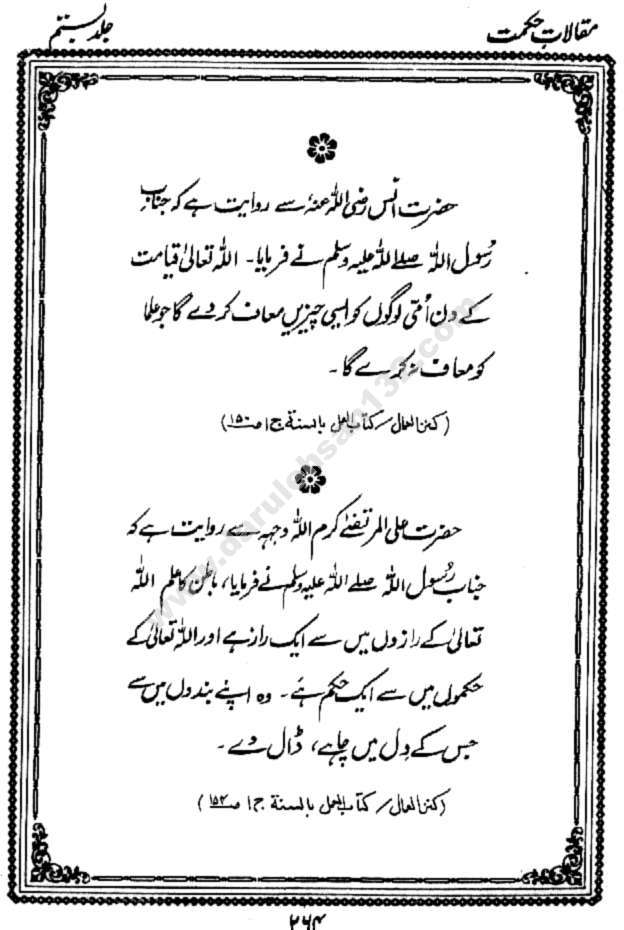 مقالاتِ حکمت
جلد بستم
حضرت انس رضی اللہ عنہٗ سے روایت ہے کہ جنابِ
رسول اللہ صلے اللہ علیہ وسلم نے فرمایا۔ اللہ تعالیٰ قیامت
کے دن اُمّی لوگوں کو ایسی چیزیں معاف کر دے گا جو علما
کو معاف نہ کرے گا۔
(کنز العمال / کتاب العمل بالسنة ج ۱ ص ۱۵۰)
حضرت علی المرتضٰے کرم اللہ وجہہ سے روایت ہے کہ
جناب رسول اللہ صلے اللہ علیہ وسلم نے فرمایا، باطن کا علم اللہ
تعالیٰ کے رازوں میں سے ایک راز ہے اور اللہ تعالیٰ کے
حکموں میں سے ایک حکم ہے۔ وہ اپنے بندوں میں سے
جس کے دل میں چاہے، ڈال دے۔
(کنز العمال / کتاب العمل بالسنة ج ۱ ص ۱۵۴)
۲۶۴
www.darulehsan132.com